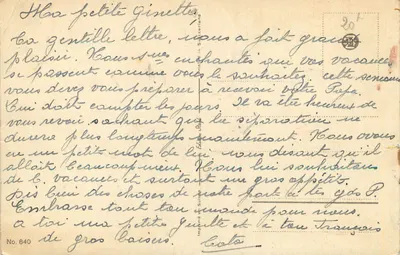 Ma petite Ginette
Ta gentille lettre, nous a fait grand
plaisir. Nous sommes enchantés que vos vacances
se passent comme vous le souhaitez, cette semaine
vous devez vous préparer à recevoir votre Papa.
Lui doit compter les jours. Il va être heureux de
vous revoir sachant que la séparation ne
durera plus longtemps maintenant. Nous avons
eu un petit mot de lui, nous disant qu'il
allait beaucoup mieux. Nous lui souhaitons
de vacances et surtout un gros appétit.
Dis lui des choses de notre part à tes gds P.
Embrasse tout ton monde pour nous.
a toi ma petite et à ton François
de gros baisers. Lola
20
No. 840